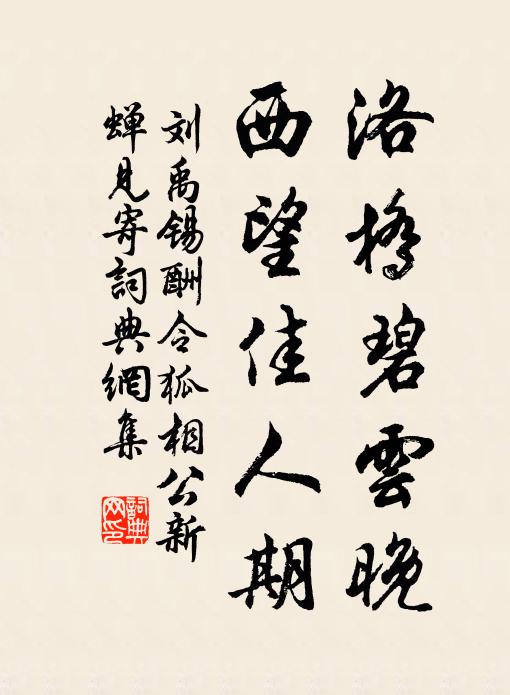 洛橋碧雲晚
西望佳人期
刘禹锡酬令狐相公新
蝉見寄詞典網集
詞典網印